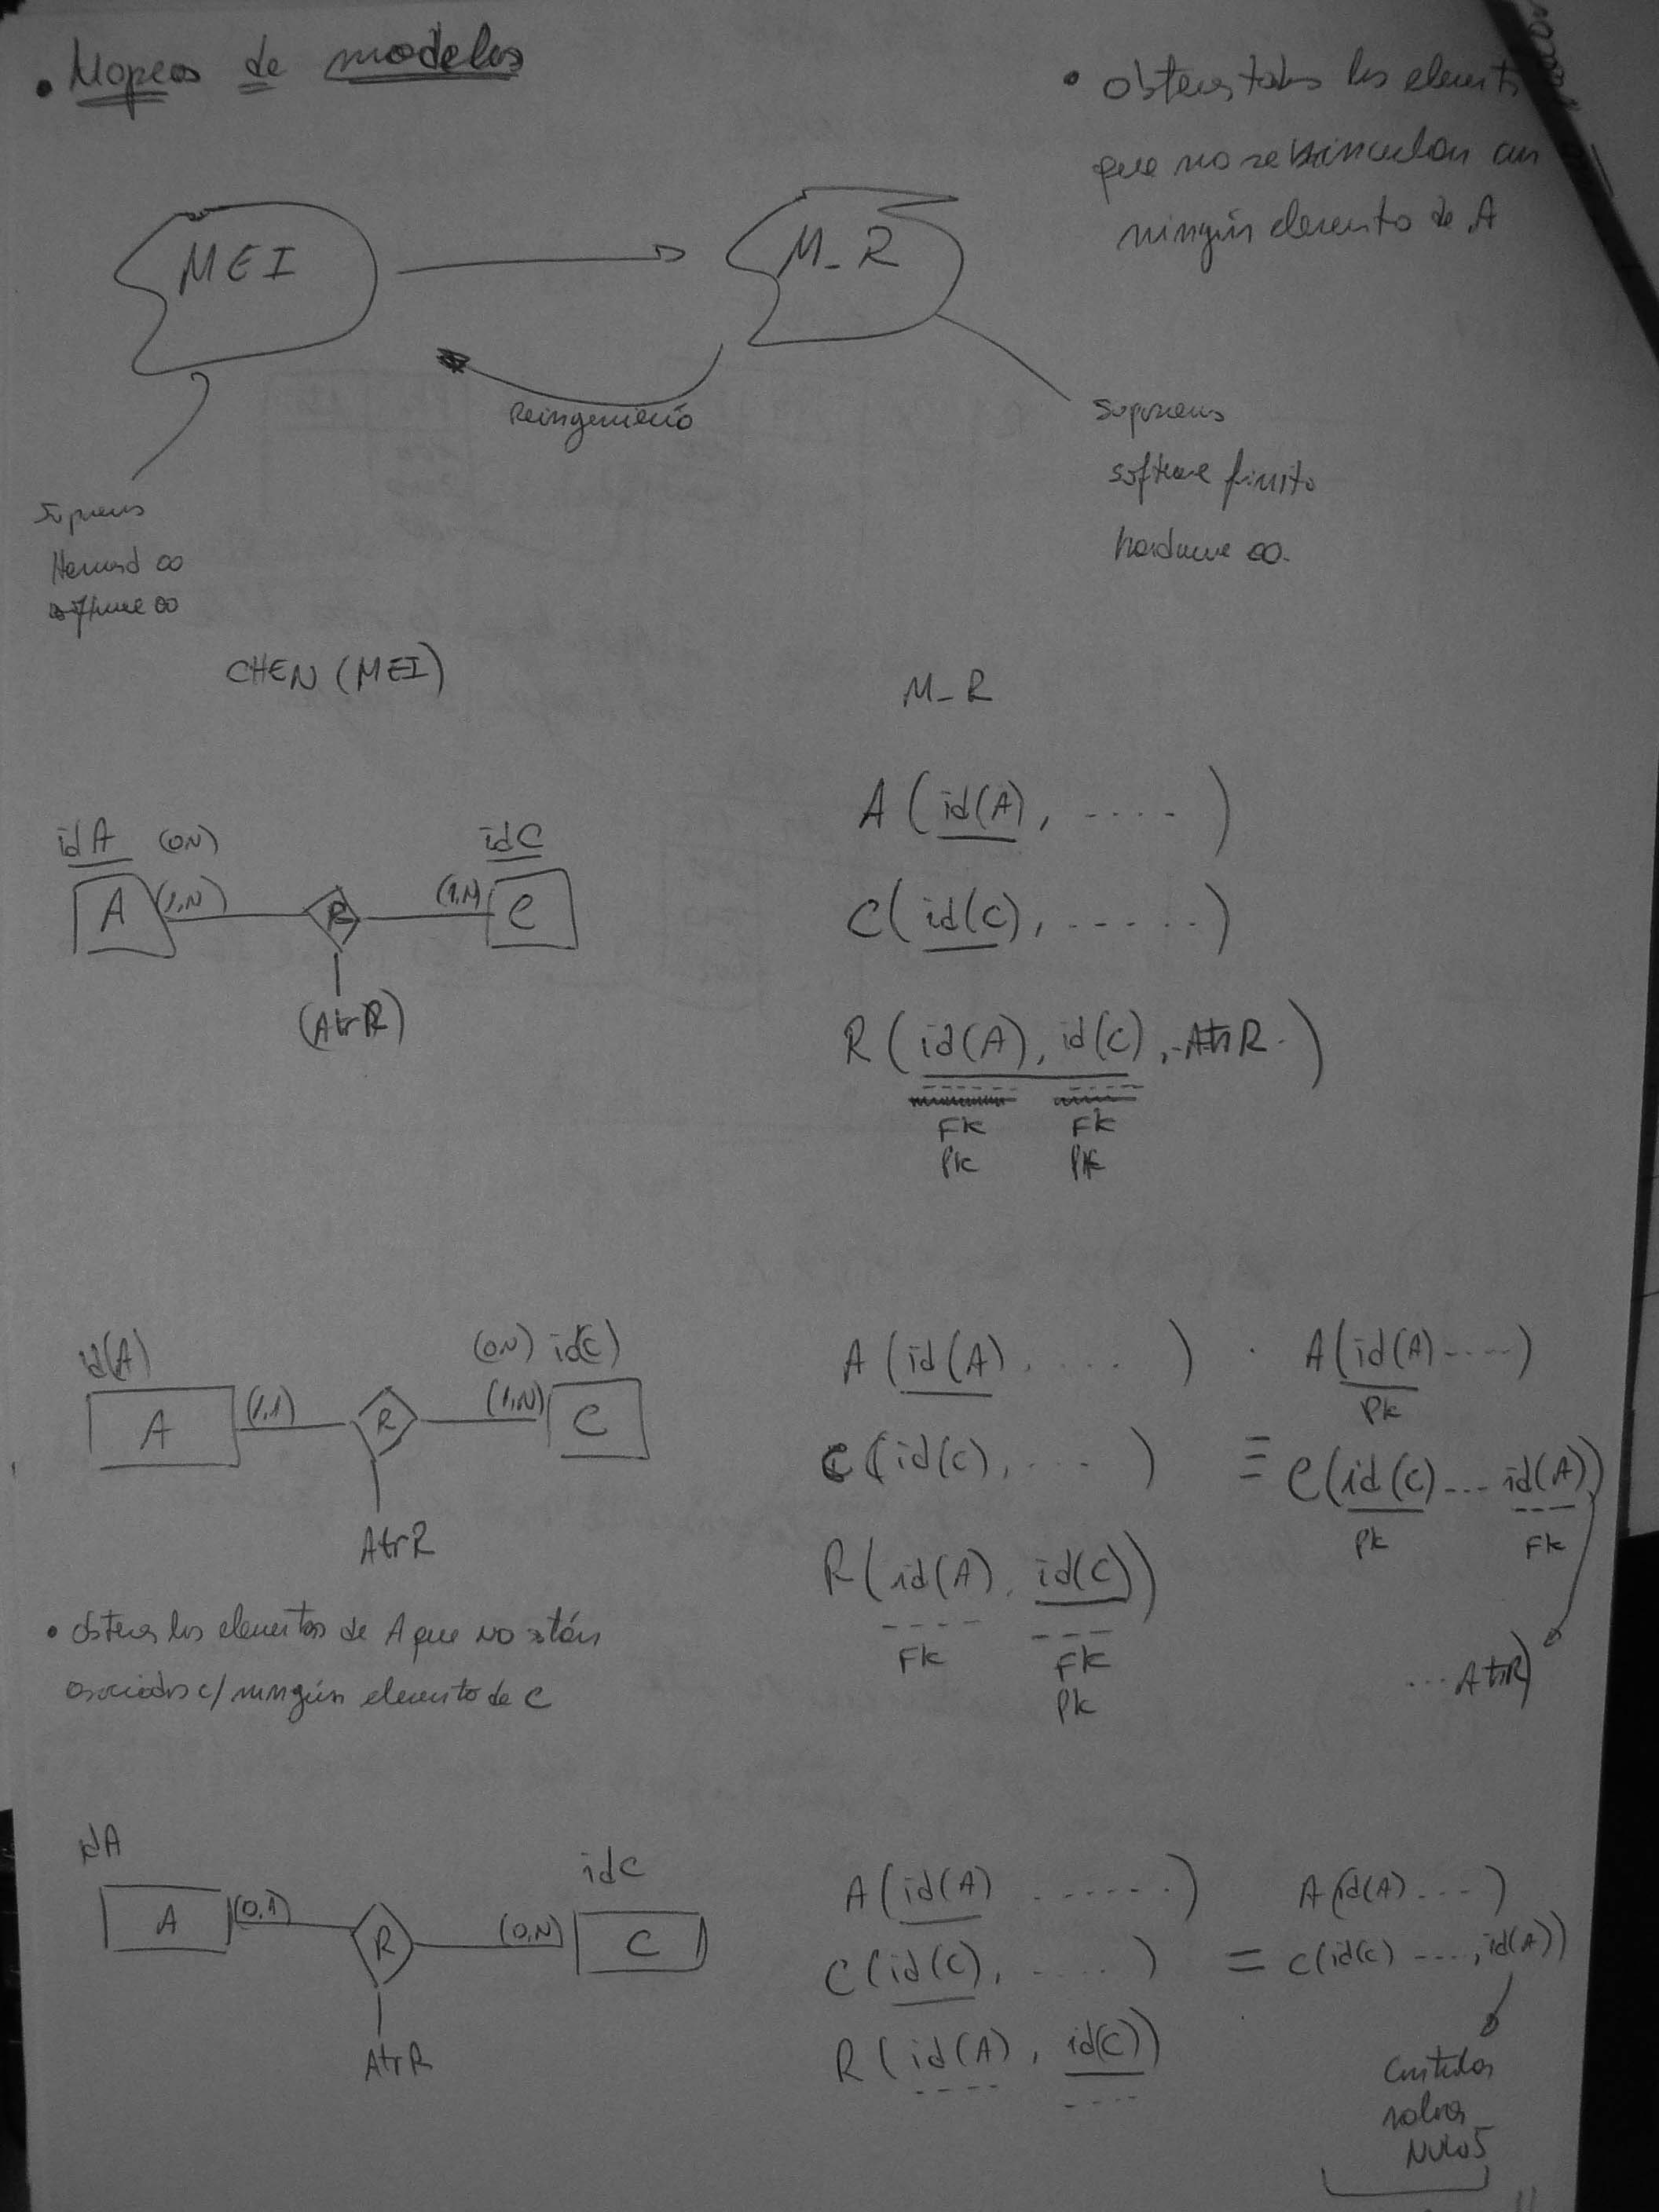 • Mapeos de modelos
• obtener todos los element
que no se vinculan con
ningún elemento de A
MEI
M-R
Reingeniería
software finito
hardware ∞.
∞
software ∞
CHEN (MEI)
M-R
idA (0N)
idC
A (1,N) R (1,N) C
(AtrR)
A (id(A), .....)
C (id(C), ......)
R (id(A), id(C), AtrR.)
FK FK
PK PK
id(A)
(0N) id(C)
A (1,1) R (1,N) C
AtrR
A (id(A). ....)
C (id(C), ....)
R (id(A), id(C))
FK FK
PK
A (id(A) ....)
PK
≡ C (id(C) ... id(A))
PK FK
... AtrR)
• obtener los elementos de A que NO están
asociados c/ ningún elemento de C
idA
idC
A (0,1) R (0,N) C
AtrR
A (id(A) ......)
C (id(C), .....)
R (id(A), id(C))
A (id(A) ....)
= C (id(C) ...., id(A))
valores
NULOS